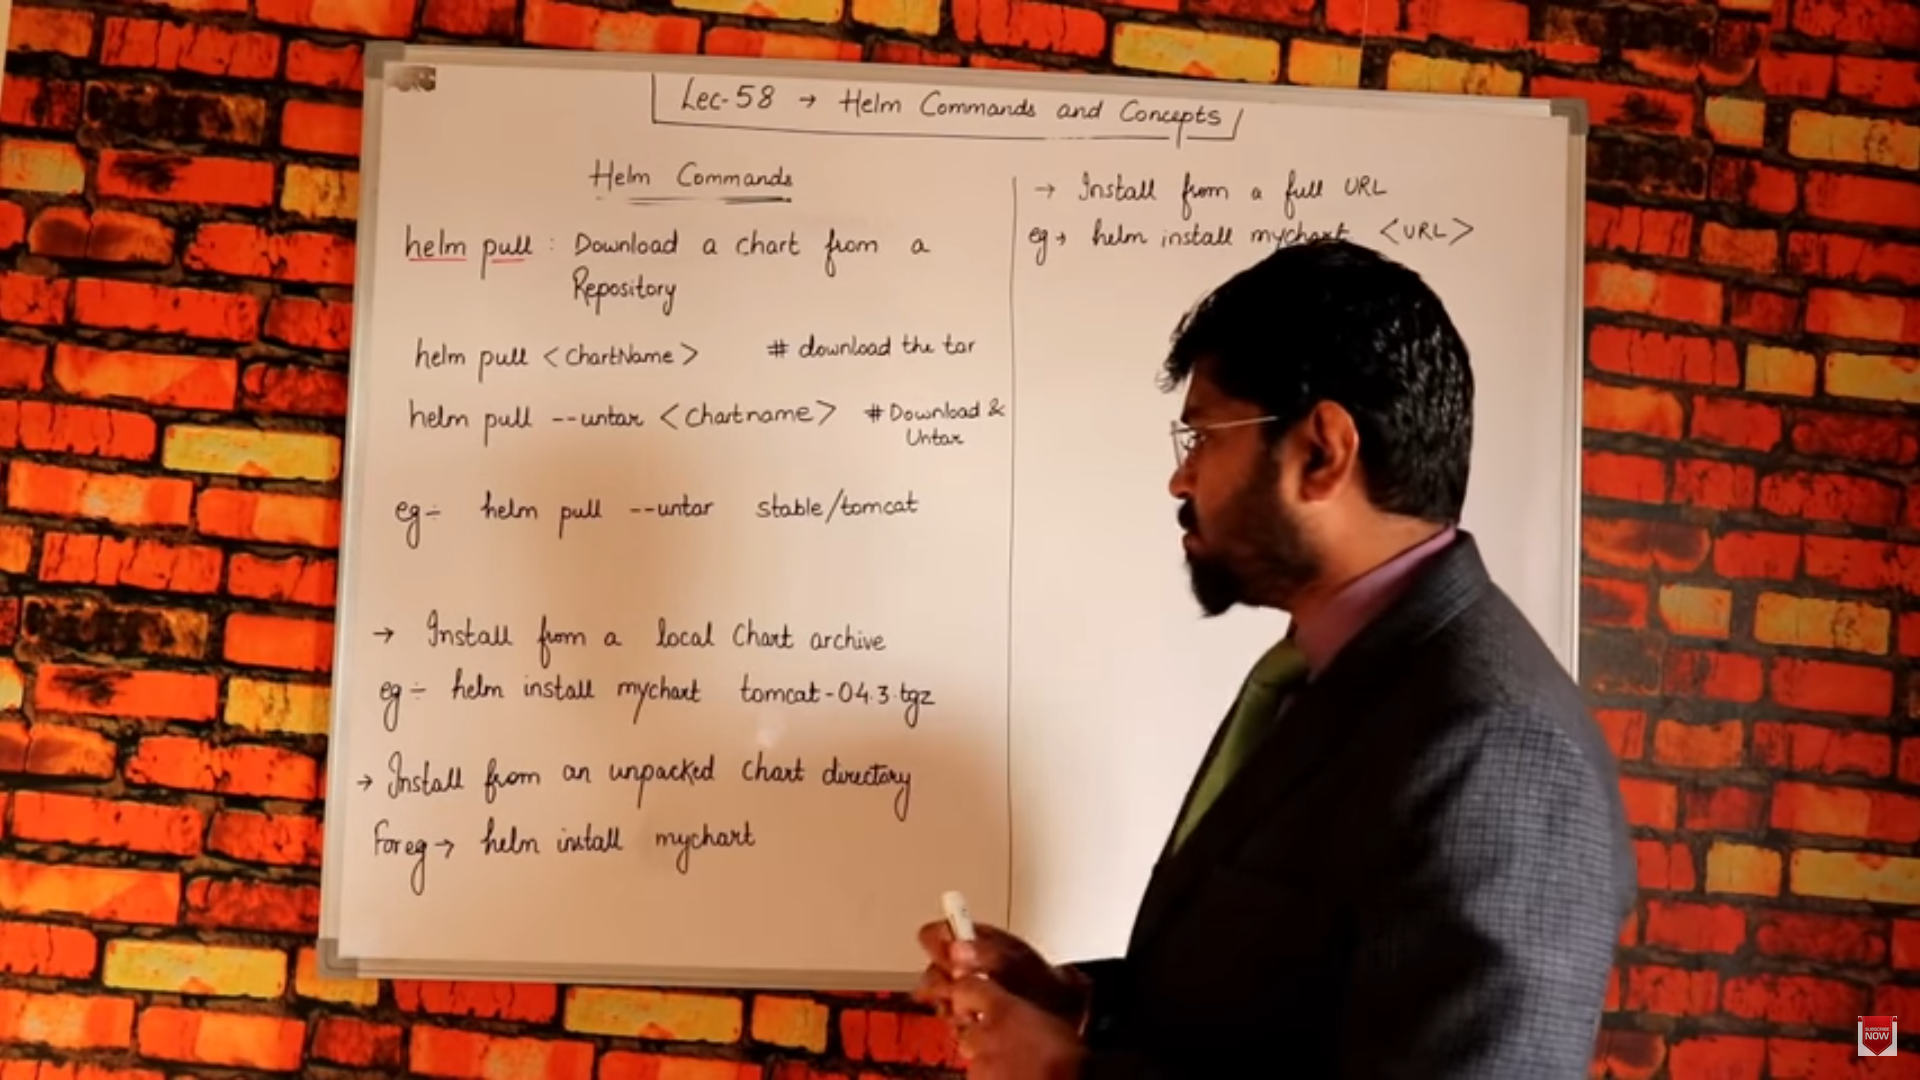 Lec-58 → Helm Commands and Concepts
Helm Commands
helm pull : Download a chart from a
Repository
helm pull <ChartName> # download the tar
helm pull --untar <Chartname> # Download &
Untar
eg÷ helm pull --untar stable/tomcat
→ Install from a local Chart archive
eg÷ helm install mychart tomcat-04.3.tgz
→ Install from an unpacked Chart directory
For eg → helm install mychart
→ Install from a full URL
eg → helm install mychart <URL>
SUBSCRIBE
NOW